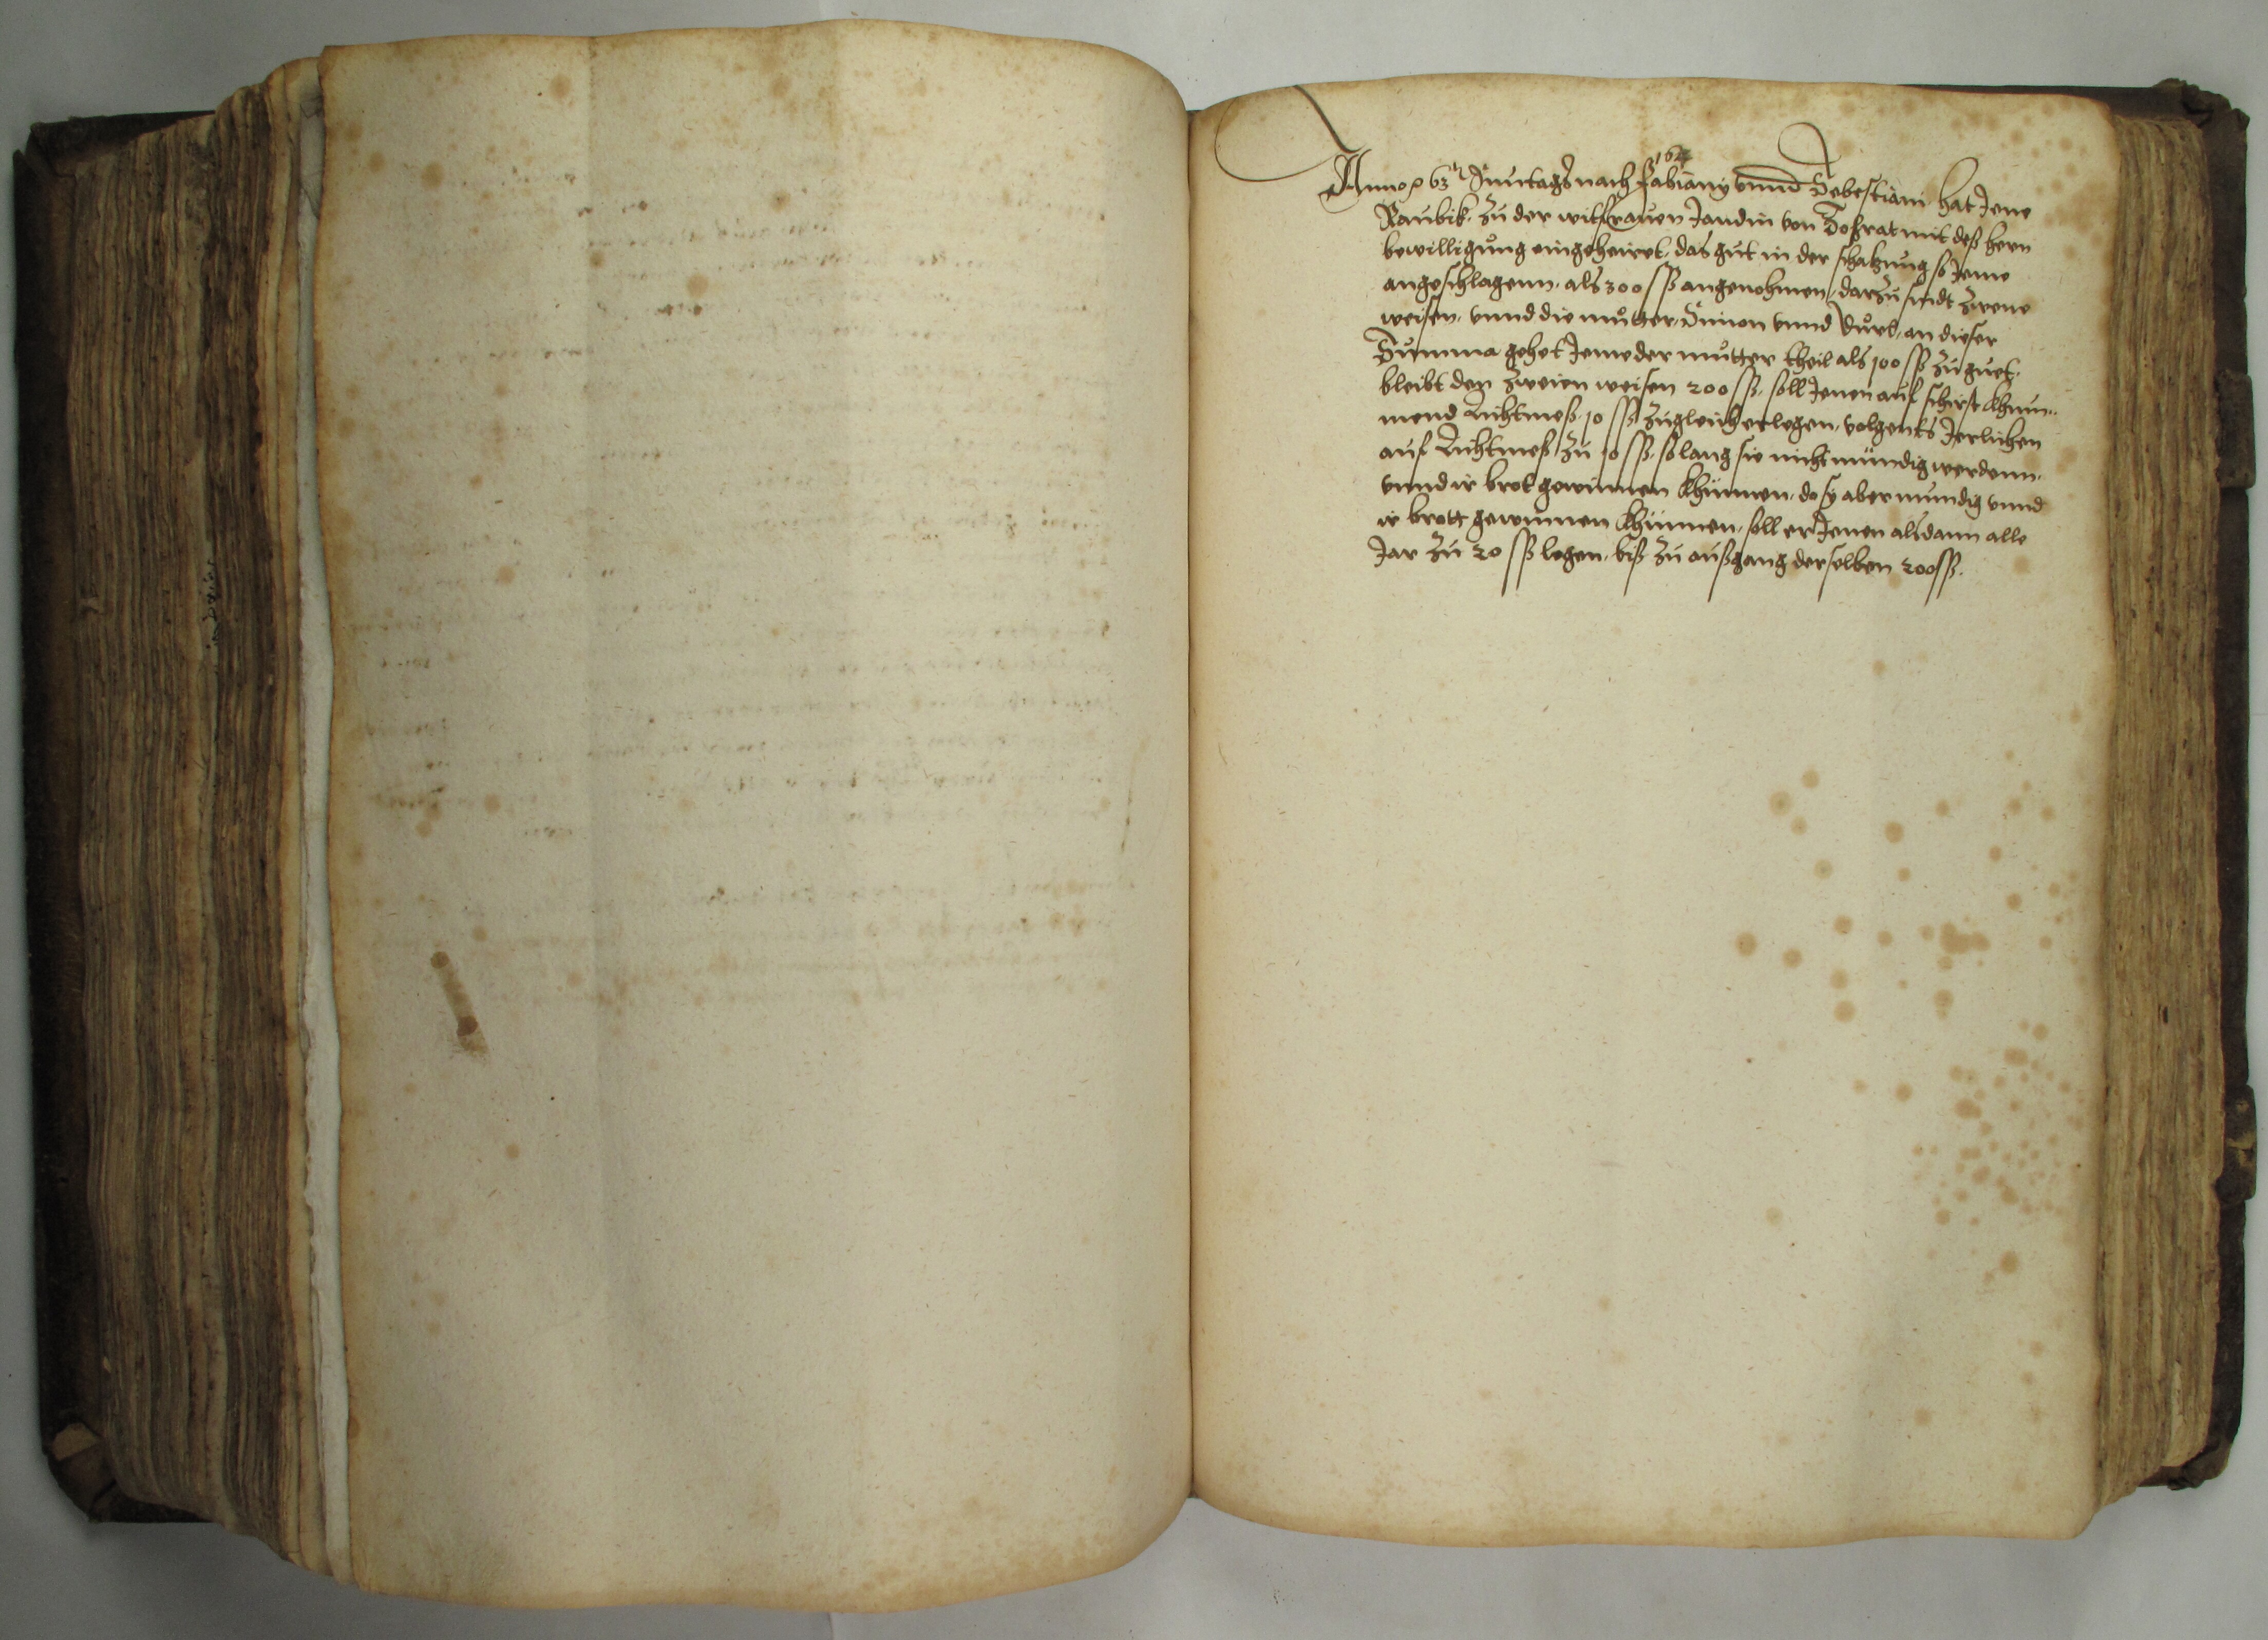 164
Anno 63 Suntags nach Fabiany vnnd Sebestiani hat Jene
Raubik zu der witfrauen Jandin von Dobrat mit deß hern
bewilligung eingeheiret, das gut in der schatzung so Jeme
angeschlagenn, als 300 ss angenohmen, darzu sindt zwene
weisen, vnnd die mutter, Simon vnnd Durl, an dieser
Summa gehet Jeme der mutter theil als 100 ss zu guet,
bleibt den zweien weisen 200 ss, soll Jenen auf schirst khum¬
mend Lichtmeß 10 ss zugleich erlegen, volgents Jerlichen
auf Lichtmeß zu 10 ss, so lang sie nicht mündig werdenn,
vnnd ir brot gewinnen khünnen, do sy aber mundig vnnd
ir brott gewinnen khünnen, soll er Jenen alsdann alle
Jar zu 20 ss legen, biß zu außgang derselben 200 ss.